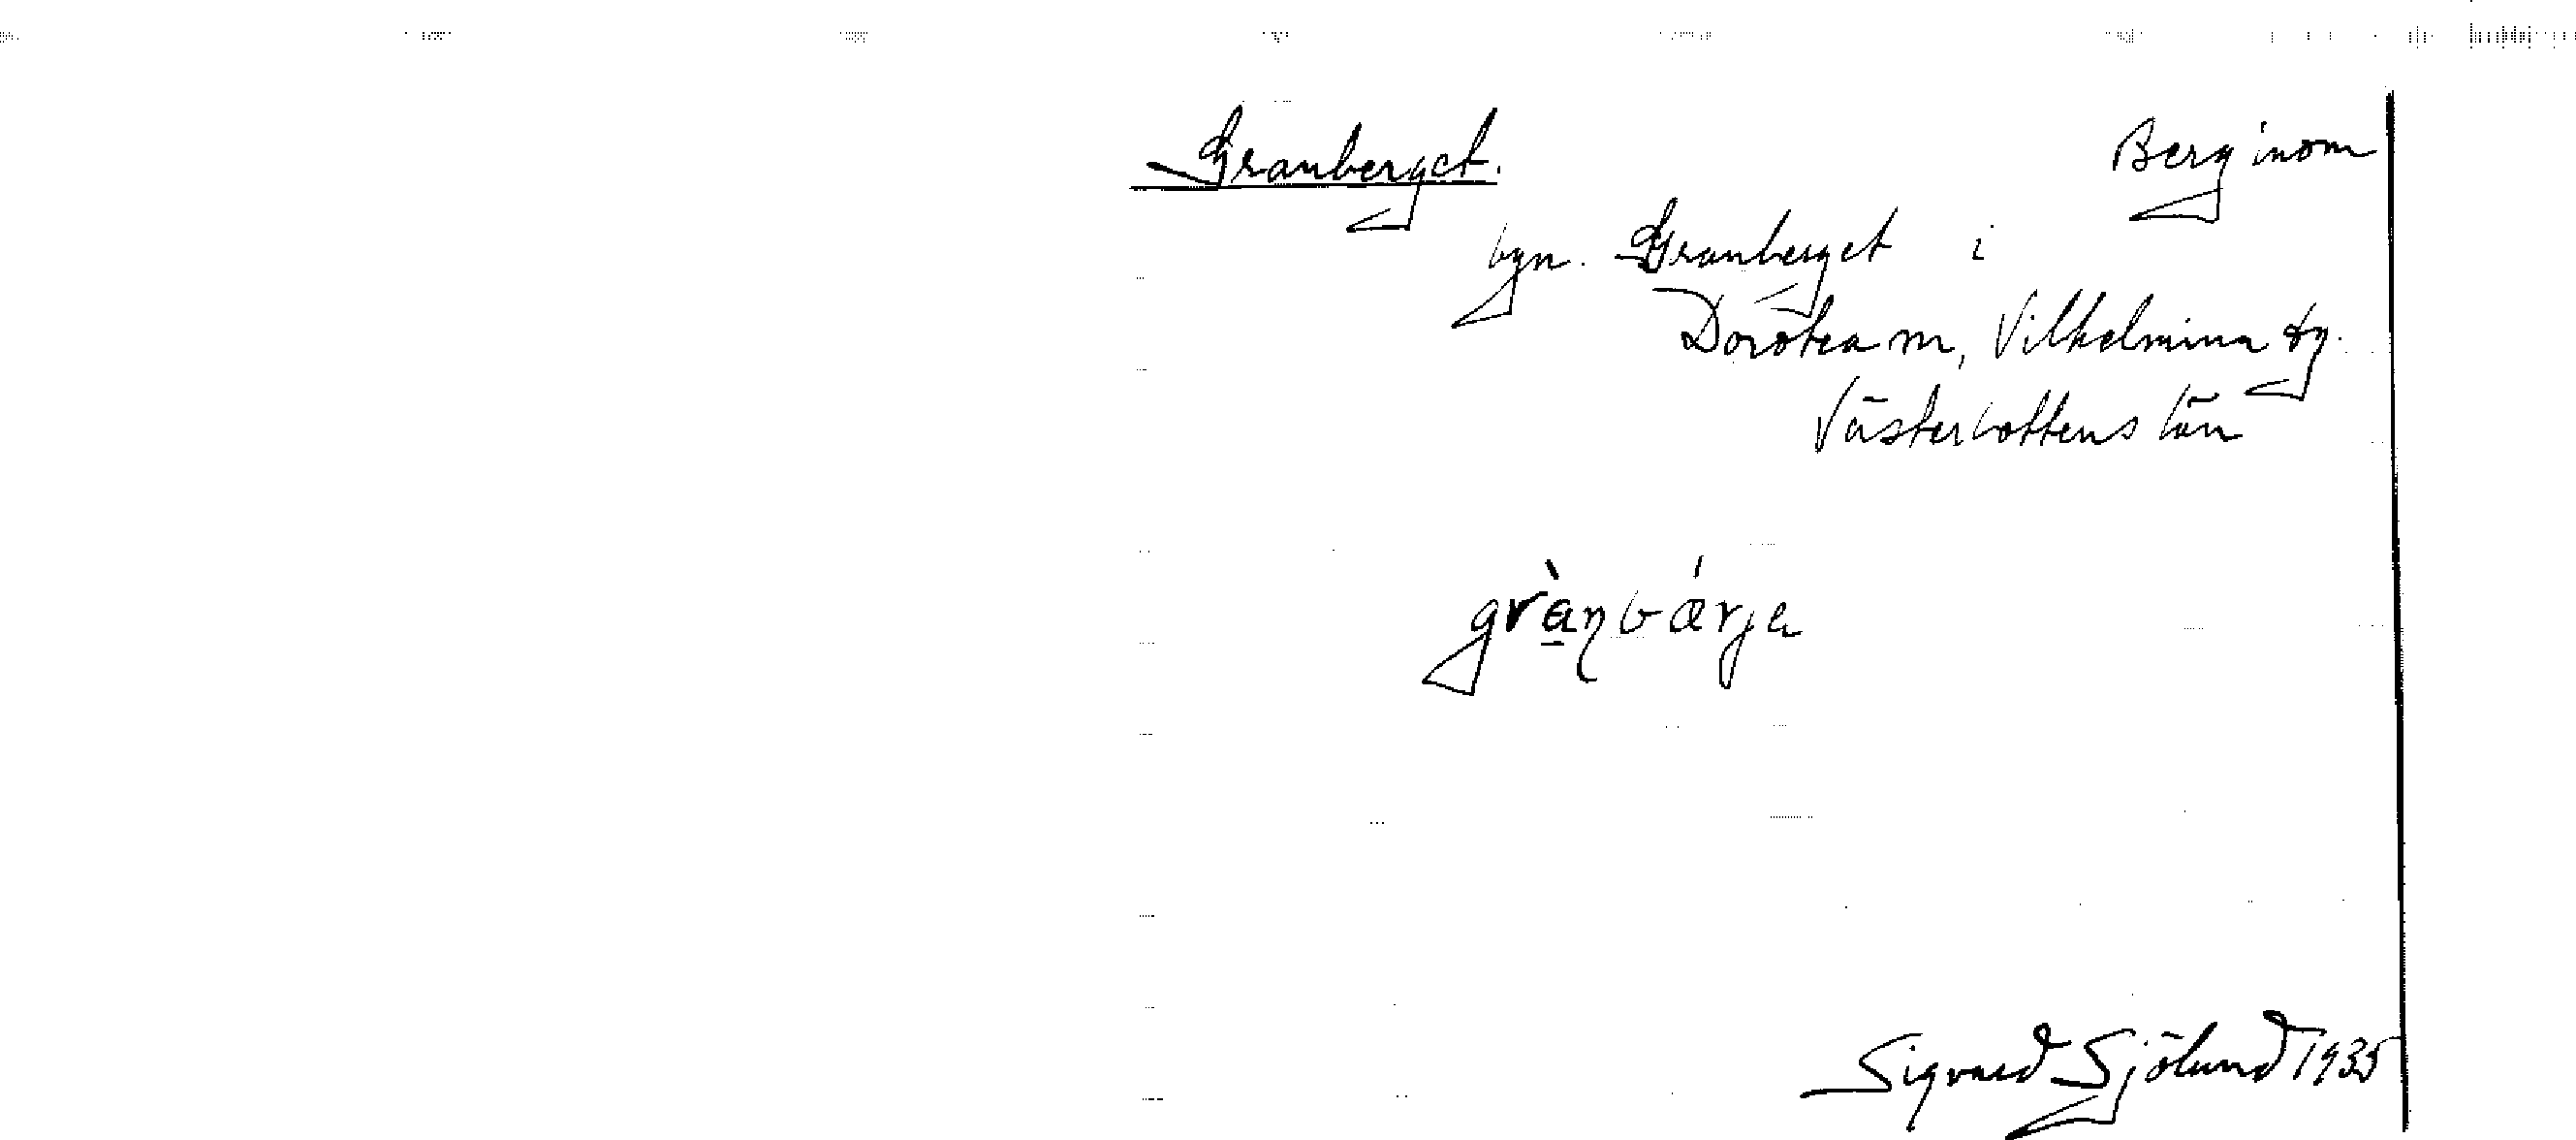 Granberget. Berg inom
byn. Granberget i
Dorotea m, Vilhelmina tg.
Västerbottens län
grànbárja
Sigvard Sjölund 1935